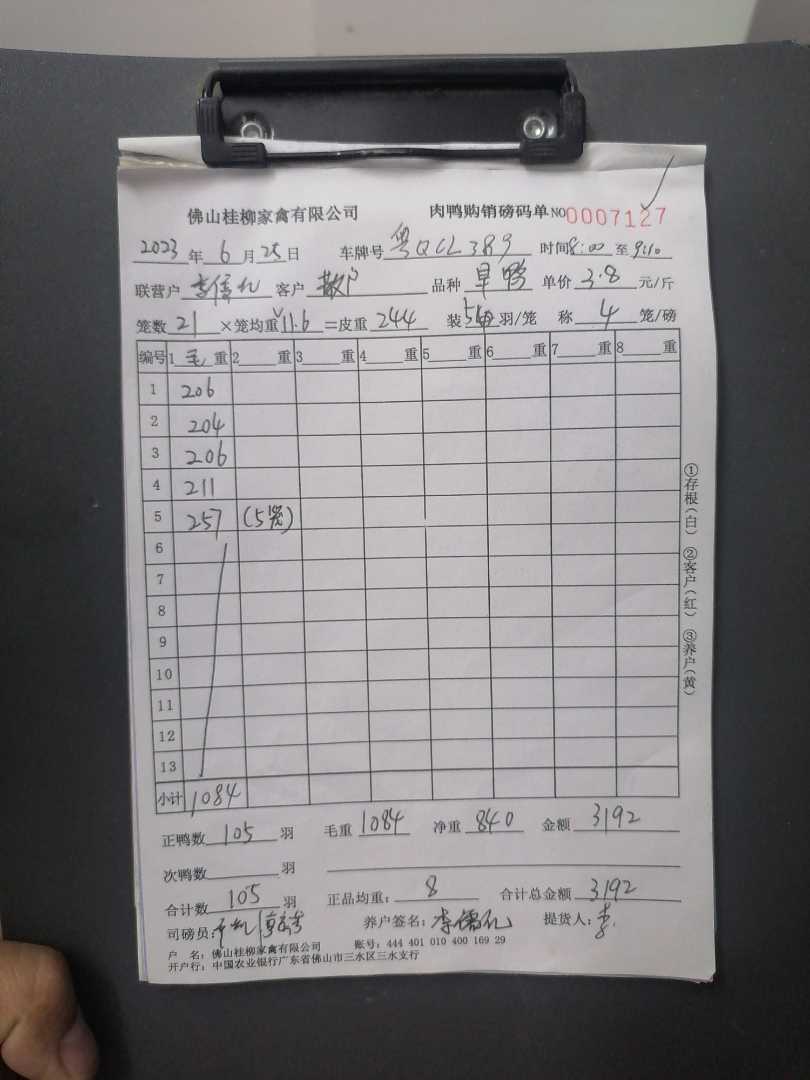 佛山桂柳家禽有限公司 肉鸭购销磅码单 NO 0007127
2023 年 6 月 25 日 车牌号 粤QCL389 时间 8:00 至 9:10
联营户 李信礼 客户 散户 品种 旱鸭 单价 3.8 元/斤
笼数 21 ×笼均重 11.6 =皮重 244 装 5 羽/笼 称 4 笼/磅
编号 1 毛 重 2 重 3 重 4 重 5 重 6 重 7 重 8 重
1 206
2 204
3 206
4 211
5 257 (5笼)
6
7
8
9
10
11
12
13
小计 1084
①存根(白) ②客户(红) ③养户(黄)
正鸭数 105 羽 毛重 1084 净重 840 金额 3192
次鸭数 羽
合计数 105 羽 正品均重: 8 合计总金额 3192
司磅员: 养户签名: 提货人: 李
户 名: 佛山桂柳家禽有限公司 账号: 444 401 010 400 169 29
开户行: 中国农业银行广东省佛山市三水区三水支行